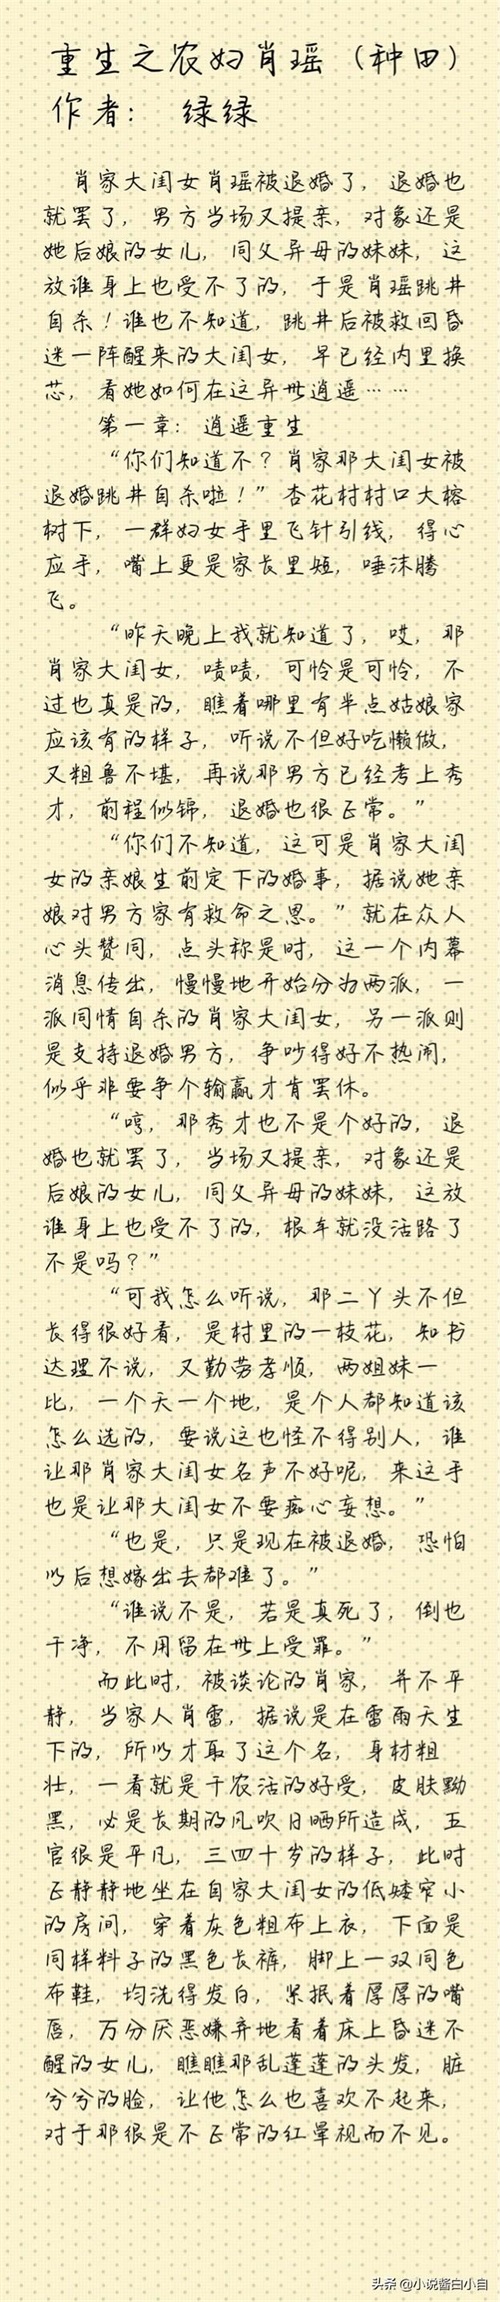 重生之农妇肖瑶（种田）
作者： 绿绿
肖家大闺女肖瑶被退婚了，退婚也
就罢了，男方当场又提亲，对象还是
她后娘的女儿，同父异母的妹妹，这
放谁身上也受不了的，于是肖瑶跳井
自杀！谁也不知道，跳井后被救回昏
迷一阵醒来的大闺女，早已经内里换
芯，看她如何在这异世逍遥……
第一章：逍遥重生
“你们知道不？肖家那大闺女被
退婚跳井自杀啦！”杏花村村口大榕
树下，一群妇女手里飞针引线，得心
应手，嘴上更是家长里短，唾沫腾
飞。
“昨天晚上我就知道了，哎，那
肖家大闺女，啧啧，可怜是可怜，不
过也真是的，瞧着哪里有半点姑娘家
应该有的样子，听说不但好吃懒做，
又粗鲁不堪，再说那男方已经考上秀
才，前程似锦，退婚也很正常。”
“你们不知道，这可是肖家大闺
女的亲娘生前定下的婚事，据说她亲
娘对男方家有救命之恩。”就在众人
心头赞同，点头称是时，这一个内幕
消息传出，慢慢地开始分为两派，一
派同情自杀的肖家大闺女，另一派则
是支持退婚男方，争吵得好不热闹，
似乎非要争个输赢才肯罢休。
“哼，那秀才也不是个好的，退
婚也就罢了，当场又提亲，对象还是
后娘的女儿，同父异母的妹妹，这放
谁身上也受不了的，根本就没活路了
不是吗？”
“可我怎么听说，那二丫头不但
长得很好看，是村里的一枝花，知书
达理不说，又勤劳孝顺，两姐妹一
比，一个天一个地，是个人都知道该
怎么选的，要说这也怪不得别人，谁
让那肖家大闺女名声不好呢，来这手
也是让那大闺女不要痴心妄想。”
“也是，只是现在被退婚，恐怕
以后想嫁出去都难了。”
“谁说不是，若是真死了，倒也
干净，不用留在世上受罪。”
而此时，被谈论的肖家，并不平
静，当家人肖雷，据说是在雷雨天生
下的，所以才取了这个名，身材粗
壮，一看就是干农活的好受，皮肤黝
黑，必是长期的风吹日晒所造成，五
官很是平凡，三四十岁的样子，此时
正静静地坐在自家大闺女的低矮窄小
的房间，穿着灰色粗布上衣，下面是
同样料子的黑色长裤，脚上一双同色
布鞋，均洗得发白，紧抿着厚厚的嘴
唇，万分厌恶嫌弃地看着床上昏迷不
醒的女儿，瞧瞧那乱蓬蓬的头发，脏
兮兮的脸，让他怎么也喜欢不起来，
对于那很是不正常的红晕视而不见。
头条 @小说酱白小白